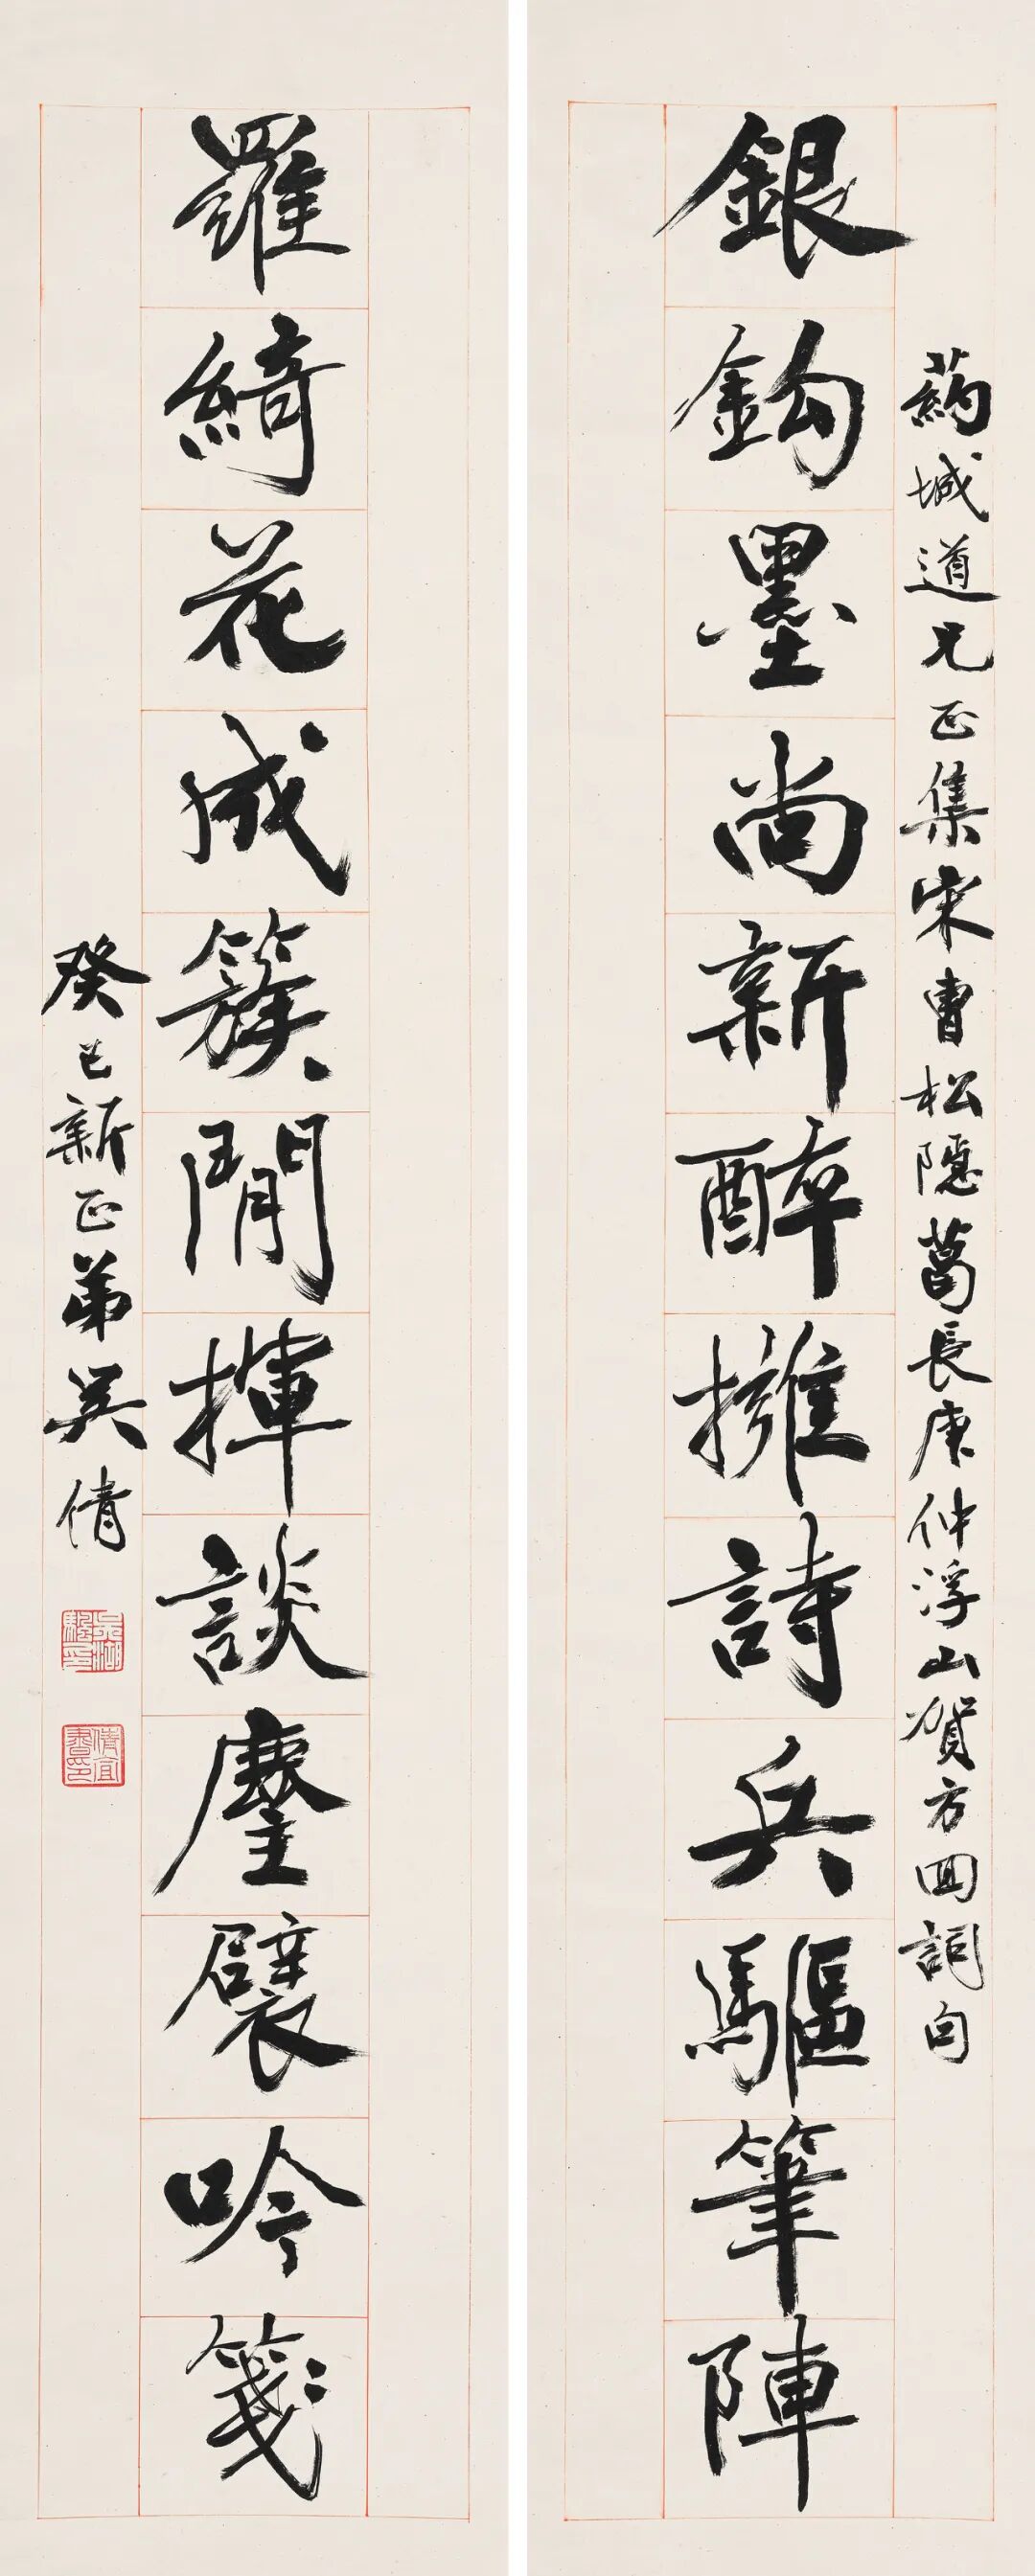 葯城道兄正集宋曹松隱葛長庚仲浮山賀方回詞句
銀鈎墨尚新醉擁詩兵驅筆陣
羅綺花成簇閒揮談麈襞吟箋
癸巳新正弟吳倩
吳湖驅印
倩宜書印